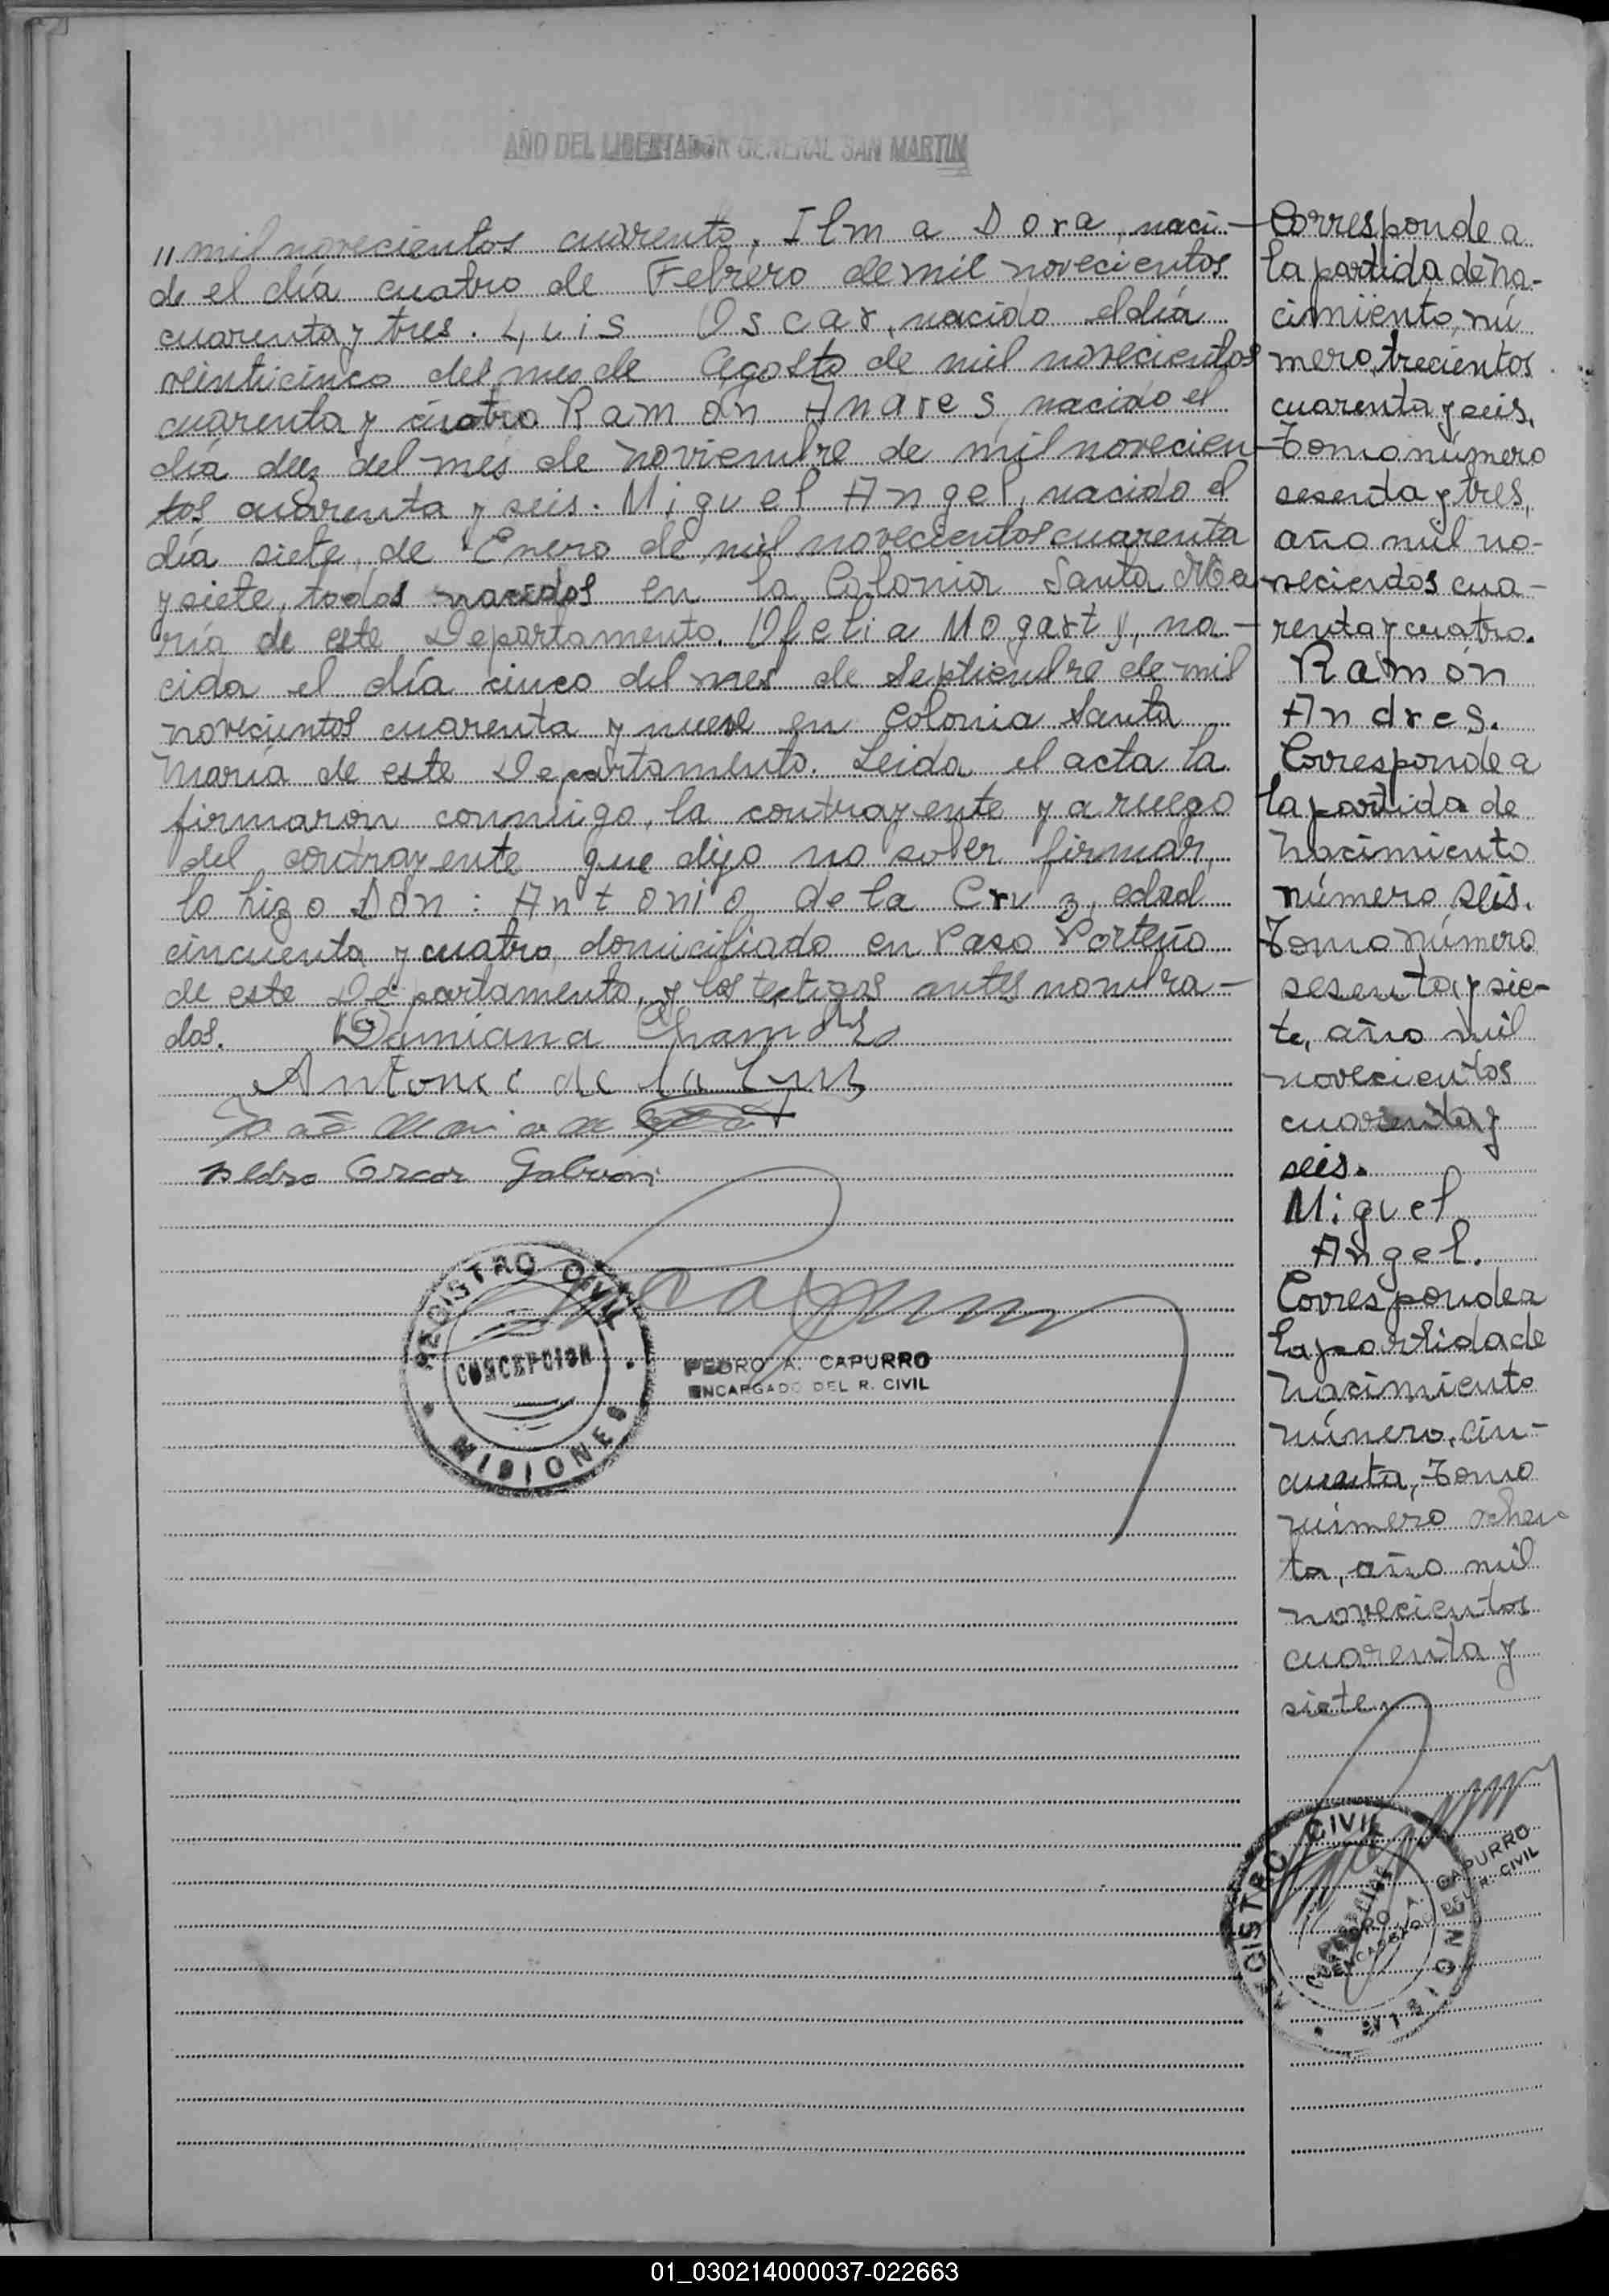 AÑO DEL LIBERTADOR GENERAL SAN MARTIN
" mil novecientos cuarenta. Ilma Dora, naci-
da el día cuatro de Febrero de mil novecientos
cuarenta y tres. Luis Oscar, nacido el día
veinticinco del mes de Agosto de mil novecientos
cuarenta y cuatro Ramón Andres, nacido el
día diez del mes de noviembre de mil novecien-
tos cuarenta y seis. Miguel Angel, nacido el
día siete, de Enero de mil novecientos cuarenta
y siete, todos nacidos en la Colonia Santa Ma
ría de este Departamento. Ofelia Mogarty, na-
cida el día cinco del mes de Septiembre de mil
novecientos cuarenta y nueve en Colonia Santa
María de este Departamento. Leida el acta la
firmaron conmigo, la contrayente y a ruego
del contrayente que dijo no saber firmar,
lo hizo Dón: Antonio de la Cruz, edad
cincuenta y cuatro, domiciliado en Paso Porteño
de este Departamento, y los testigos antes nombra-
dos. Damiana
Antonio de la Cruz
Pedro Oscar
REGISTRO CIVIL
CONCEPCION
MISIONES
PEDRO A. CAPURRO
ENCARGADO DEL R. CIVIL
Corresponde a
la partida de na-
cimiento, nú
mero, trecientos
cuarenta y seis,
Tomo número
sesenta y tres,
año mil no-
vecientos cua-
renta y cuatro.
Ramón
Andres.
Corresponde a
la partida de
nacimiento
número seis.
Tomo número
sesenta y sie-
te, año mil
novecientos
cuarenta y
seis.
Miguel
Angel.
Corresponde a
la partida de
nacimiento
número, cin-
cuenta, Tomo
número ochen
ta, año mil
novecientos
cuarenta y
siete
REGISTRO CIVIL
CONCEPCION
MISIONES
PEDRO A. CAPURRO
ENCARGADO DEL R. CIVIL
01_030214000037-022663